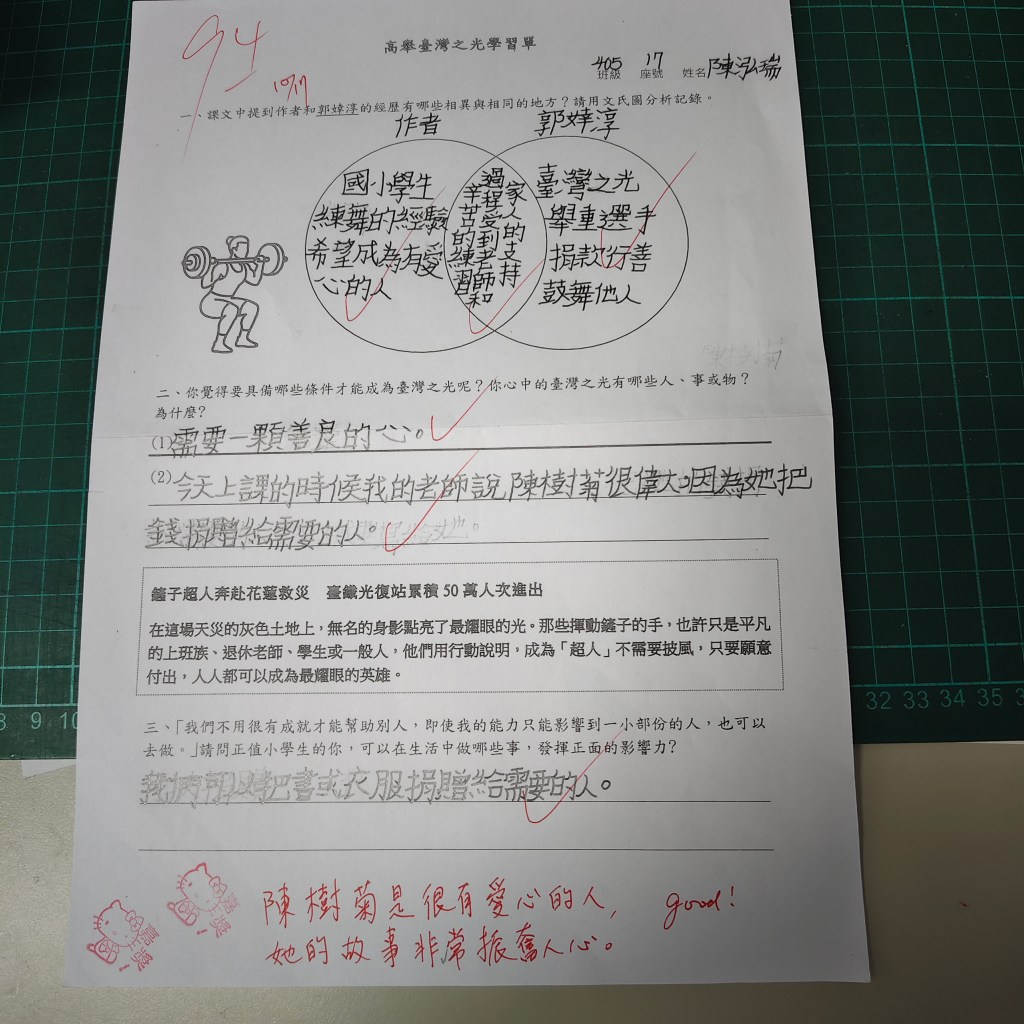 94
10/17
高舉臺灣之光學習單
班級 405 座號 17 姓名 陳泓瑞
一、課文中提到作者和郭婞淳的經歷有哪些相異與相同的地方？請用文氏圖分析記錄。
作者
郭婞淳
國小學生
練舞的經驗
希望成為有愛
心的人
辛苦的練習
過程受到老師和
家人的支持
臺灣之光
舉重選手
捐款行善
鼓舞他人
二、你覺得要具備哪些條件才能成為臺灣之光呢？你心中的臺灣之光有哪些人、事或物？
為什麼？
(1)需要一顆善良的心。
(2)今天上課的時候我的老師說,陳樹菊很偉大。因為她把
錢捐贈給需要的人。
鏟子超人奔赴花蓮救災　臺鐵光復站累積 50 萬人次進出
在這場天災的灰色土地上，無名的身影點亮了最耀眼的光。那些揮動鏟子的手，也許只是平凡
的上班族、退休老師、學生或一般人，他們用行動說明，成為「超人」不需要披風，只要願意
付出，人人都可以成為最耀眼的英雄。
三、「我們不用很有成就才能幫助別人，即使我的能力只能影響到一小部份的人，也可以
去做。」請問正值小學生的你，可以在生活中做哪些事，發揮正面的影響力？
把書或衣服捐贈給需要的人。
嘉獎
嘉獎
陳樹菊是很有愛心的人,
good!
她的故事非常振奮人心。
8 9 10
32 33 34 35